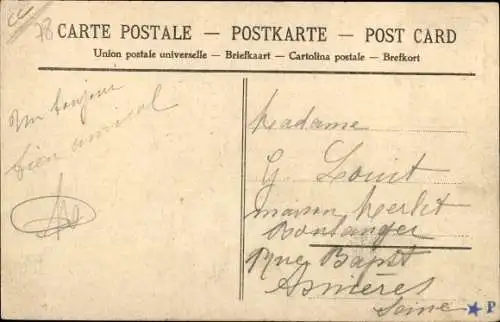 78
CARTE POSTALE — POSTKARTE — POST CARD
Union postale universelle — Briefkaart — Cartolina postale — Brefkort
Un bonjour
bien amical
Madame
G. Louit
maison Merlet
Boulanger
Rue Bapst
Asnières
Seine
P